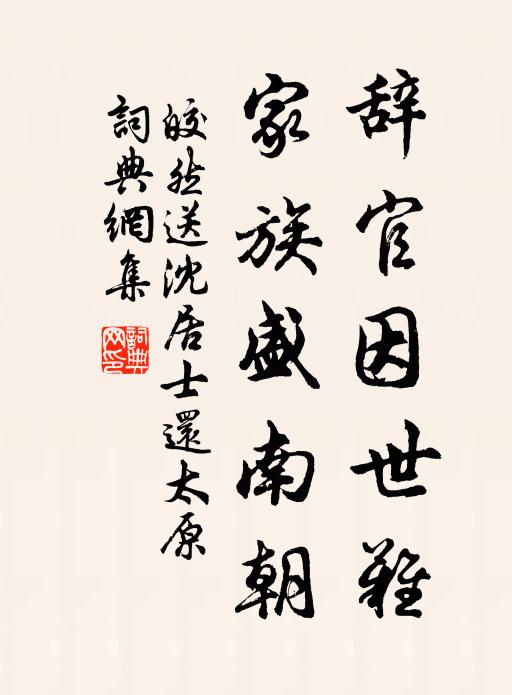 辞官因世難
家族盛南朝
皎然送沈居士還太原
詞典網集
詞典网印